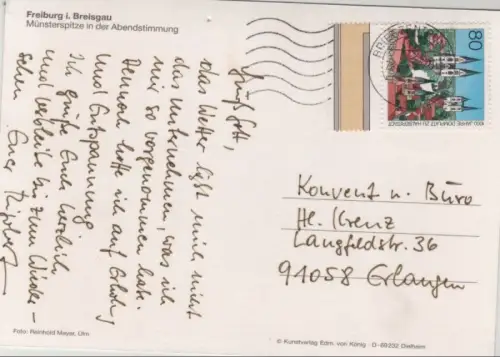 Freiburg i. Breisgau
Münsterspitze in der Abendstimmung
Grüß Gott,
das Wetter läßt mich nicht
das unternehmen, was ich
mir so vorgenommen habe.
Dennoch hoffe ich auf Erholung
und Entspannung
Ich grüße Euch herzlich
und verbleibe bis zum Wieder-
sehen Euer
80
Konvent u. Büro
Hl. Kreuz
Langfeldstr. 36
91058 Erlangen
Foto: Reinhold Mayer, Ulm
© Kunstverlag Edm. von König · D-69232 Dielheim